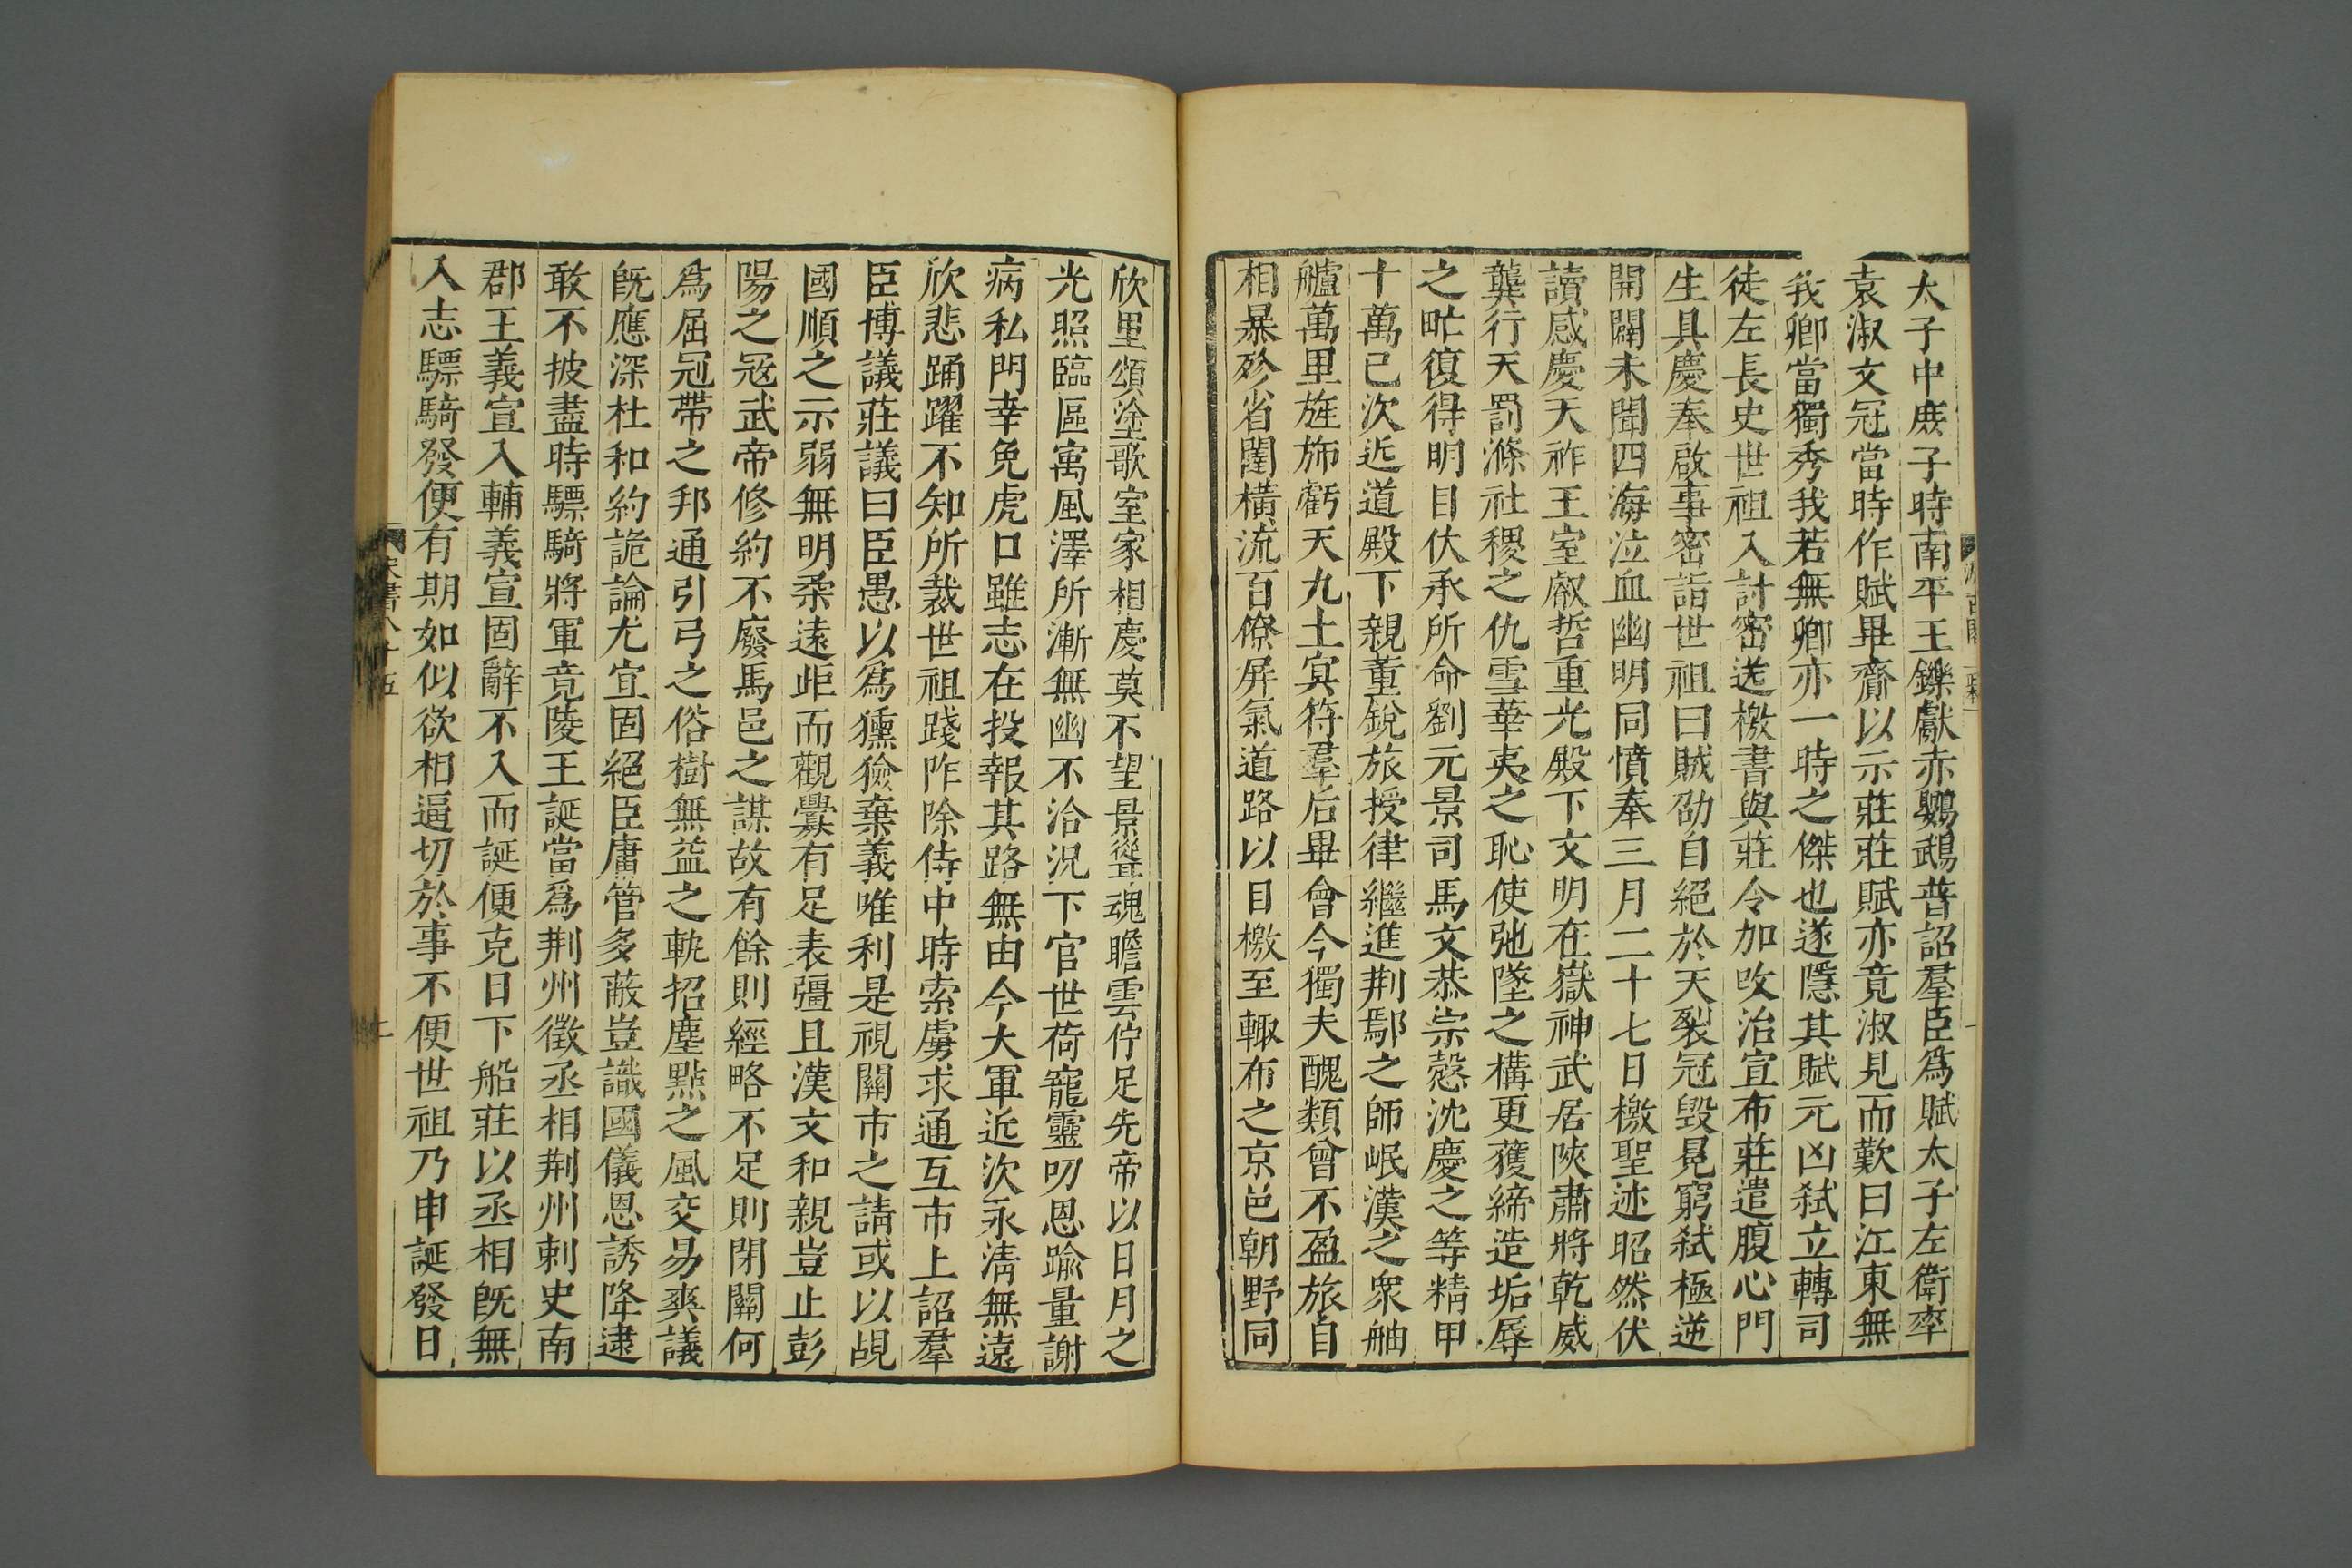 太子中庻子時南平王鑠獻赤鸚鵡普詔羣臣爲賦太子左衛率
袁淑文冠當時作賦畢齎以示莊莊賦亦竟淑見而歎曰江東無
我卿當獨秀我若無卿亦一時之傑也遂隱其賦元凶弑立轉司
徒左長史世祖入討密送檄書與莊令加改治宣布莊遣腹心門
生具慶奉啟事密詣世祖曰賊劭自絕於天裂冠毀冕窮弑極逆
開闢未聞四海泣血幽明同憤奉三月二十七日檄聖迹昭然伏
讀感慶天祚王室叡哲重光殿下文明在嶽神武居陝肅將乾威
龔行天罰滌社稷之仇雪華夷之恥使弛墜之構更獲締造垢辱
之甿復得明目伏承所命劉元景司馬文恭宗慤沈慶之等精甲
十萬已次近道殿下親董銳旅授律繼進荆鄢之師岷漢之衆舳
艫萬里旌旆虧天九土㝠符羣后畢會今獨夫醜類曾不盈旅自
相暴殄省闥橫流百僚屏氣道路以目檄至輙布之京邑朝野同
欣里頌塗歌室家相慶莫不望景聳魂瞻雲佇足先帝以日月之
光照臨區寓風澤所漸無幽不洽況下官世荷寵靈叨恩踰量謝
病私門幸免虎口雖志在投報其路無由今大軍近次永清無遠
欣悲踊躍不知所裁世祖踐阼除侍中時索虜求通互市上詔羣
臣博議莊議曰臣愚以爲獯獫棄義唯利是視關市之請或以覘
國順之示弱無明柔遠距而觀釁有足表彊且漢文和親豈止彭
陽之冦武帝修約不廢馬邑之謀故有餘則經略不足則閉關何
爲屈冠帶之邦通引弓之俗樹無益之軌招塵點之風交易爽議
旣應深杜和約詭論尤宜固絕臣庸管多蔽豈識國儀恩誘降逮
敢不披盡時驃騎將軍竟陵王誕當爲荆州徵丞相荆州刺史南
郡王義宣入輔義宣固辭不入而誕便克日下船莊以丞相旣無
入志驃騎發便有期如似欲相逼切於事不便世祖乃申誕發日